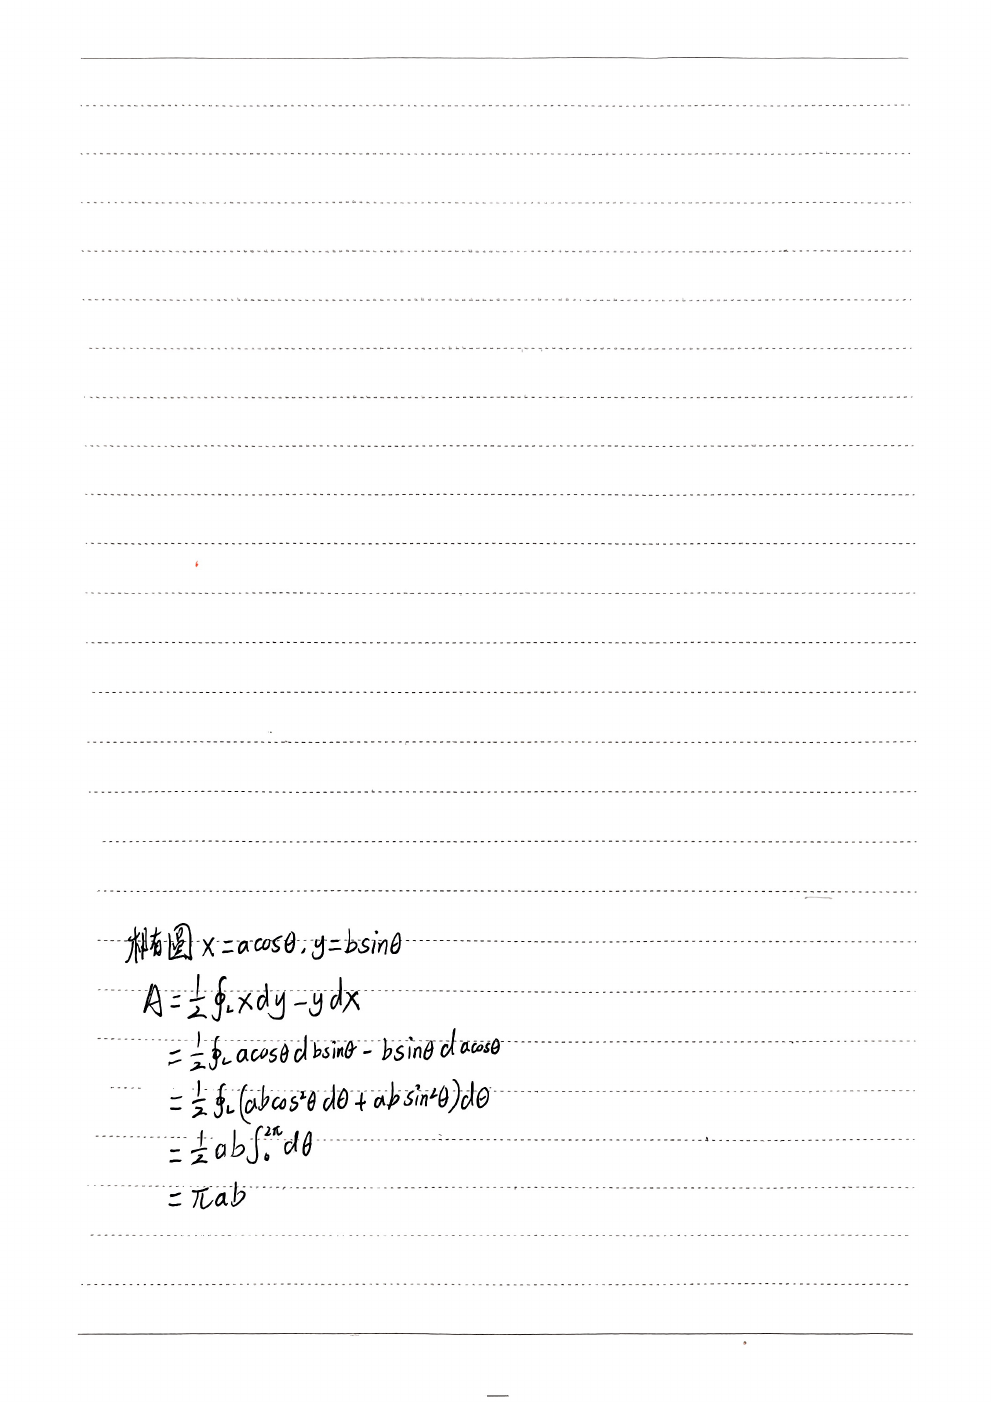 椭圆 x=acosθ, y=bsinθ
A=½∮_L xdy-ydx
=½∮_L acosθdbsinθ-bsinθdacosθ
=½∮_L(abcos²θdθ+absin²θ)dθ
=½ab∫₀^{2π}dθ
=πab